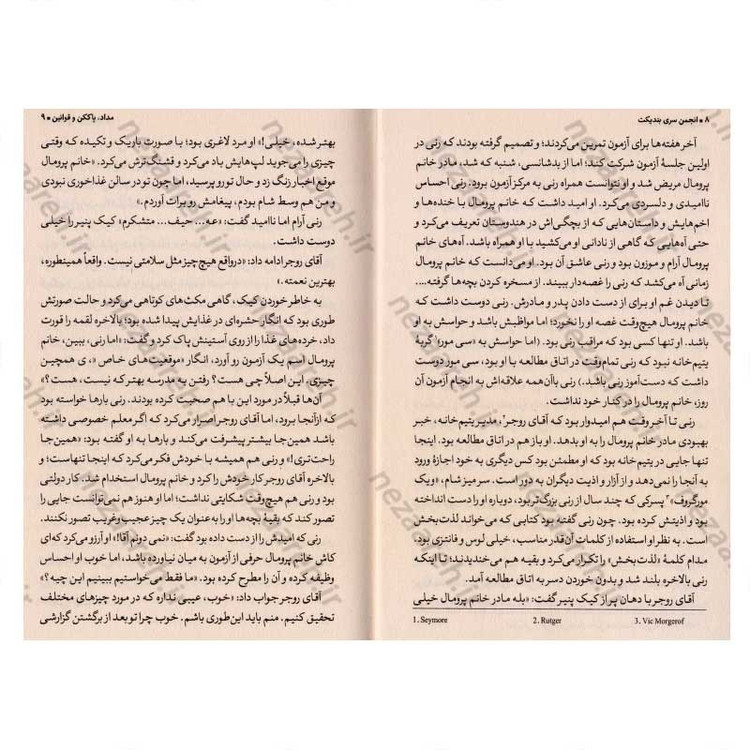 ۸ ● انجمن سری بندیکت
آخر هفته‌ها برای آزمون تمرین می‌کردند؛ و تصمیم گرفته بودند که رنی در
اولین جلسهٔ آزمون شرکت کند؛ اما از بدشانسی، شنبه که شد، مادر خانم
پرومال مریض شد و او نتوانست همراه رنی به مرکز آزمون برود. رنی احساس
ناامیدی و دلسردی می‌کرد. او امید داشت که خانم پرومال با خنده‌ها و
اخم‌هایش و داستان‌هایی که از بچگی‌اش در هندوستان تعریف می‌کرد و
حتی آه‌هایی که گاهی از نادانی او می‌کشید با او همراه باشد. آه‌های خانم
پرومال آرام و موزون بود و رنی عاشق آن بود. او می‌دانست که خانم پرومال
زمانی آه می‌کشد که رنی را غصه‌دار ببیند. از مسخره کردن بچه‌ها گرفته....
تا دیدن غم او برای از دست دادن پدر و مادرش. رنی دوست داشت که
خانم پرومال هیچ‌وقت غصه او را نخورد؛ اما مواظبش باشد و حواسش به او
باشد. او تنها کسی بود که مراقب رنی بود. (اما حواسش به «سی مور» گربهٔ
یتیم‌خانه نبود که رنی تمام‌وقت در اتاق مطالعه با او بود، سی مور دوست
داشت که دست‌آموز رنی باشد.) رنی باآن‌همه علاقه‌اش به انجام آزمون آن
روز، خانم پرومال را در کنار خود نداشت.
رنی تا آخر وقت هم امیدوار بود که آقای روجر۲، مدیر یتیم‌خانه، خبر
بهبودی مادر خانم پرومال را به او بدهد. او باز هم در اتاق مطالعه بود. اینجا
تنها جایی در یتیم‌خانه بود که او مطمئن بود کس دیگری به خود اجازهٔ ورود
به آنجا را نمی‌دهد و از آزار و اذیت دیگران به دور است. سر میز شام، «ویک
مورگروف»۳ پسرکی که چند سال از رنی بزرگ‌تر بود، دوباره او را دست انداخته
بود و اذیتش کرده بود. چون رنی گفته بود کتابی که می‌خواند لذت‌بخش
است. به نظر او استفاده از کلمات آن‌قدر مناسب، خیلی لوس و فانتزی بود.
مدام کلمهٔ «لذت‌بخش» را تکرار می‌کرد و بقیه هم می‌خندیدند؛ تا اینکه
رنی بالاخره بلند شد و بدون خوردن دسر به اتاق مطالعه آمد.
آقای روجر با دهان پر از کیک پنیر گفت: «بله مادر خانم پرومال خیلی
1. Seymore 2. Rutger 3. Vic Morgerof
مداد، پاک‌کن و قوانین ● ۹
بهتر شده، خیلی!» او مرد لاغری بود؛ با صورت باریک و تکیده که وقتی
چیزی را می‌جوید لپ‌هایش باد می‌کرد و قشنگ‌ترش می‌کرد. «خانم پرومال
موقع اخبار زنگ زد و حال تو رو پرسید، اما چون تو در سالن غذاخوری نبودی
و من هم وسط شام بودم، پیغامش رو برات آوردم.»
رنی آرام اما ناامید گفت: «عه... حیف... متشکرم» کیک پنیر را خیلی
دوست داشت.
آقای روجر ادامه داد: «درواقع هیچ‌چیز مثل سلامتی نیست. واقعاً همینطوره،
بهترین نعمته.»
به خاطر خوردن کیک، گاهی مکث‌های کوتاهی می‌کرد و حالت صورتش
طوری بود که انگار حشره‌ای در غذایش پیدا شده بود؛ بالاخره لقمه را قورت
داد، خرده‌های غذا را از روی آستینش پاک کرد و گفت: «اما رنی، ببین، خانم
پرومال اسم یک آزمون رو آورد، انگار «موقعیت‌های خاص»، ی همچین
چیزی، این اصلاً چی هست؟ رفتن به مدرسه بهتر که نیست، هست؟»
آن‌ها قبلاً در مورد این با هم صحبت کرده بودند. رنی بارها خواسته بود
که ازآنجا برود، اما آقای روجر اصرار می‌کرد که اگر معلم خصوصی داشته
باشد همین‌جا بیشتر پیشرفت می‌کند و بارها به او گفته بود: «همین‌جا
راحت‌تری!» و رنی هم همیشه با خودش فکر می‌کرد که اینجا تنهاست؛ و
بالاخره آقای روجر کار خودش را کرد و خانم پرومال استخدام شد. کار دولتی
بود و رنی هم هیچ‌وقت شکایتی نداشت؛ اما او هنوز هم نمی‌توانست جایی را
تصور کند که بقیهٔ بچه‌ها او را به‌عنوان یک چیز عجیب‌وغریب تصور نکنند.
رنی که امیدش را از دست داده بود گفت: «نمی دونم آقا!» او آرزو می‌کرد که‌ای
کاش خانم پرومال حرفی از آزمون به میان نیاورده باشد، اما خوب او احساس
وظیفه کرده و آن را مطرح کرده بود. «ما فقط می‌خواستیم ببینیم این چیه؟»
آقای روجر جواب داد: «خوب، عیبی نداره که در مورد چیزهای مختلف
تحقیق کنیم. منم باید این‌طوری باشم. خوب چرا تو بعد از برگشتن گزارشی
nezaareh.ir